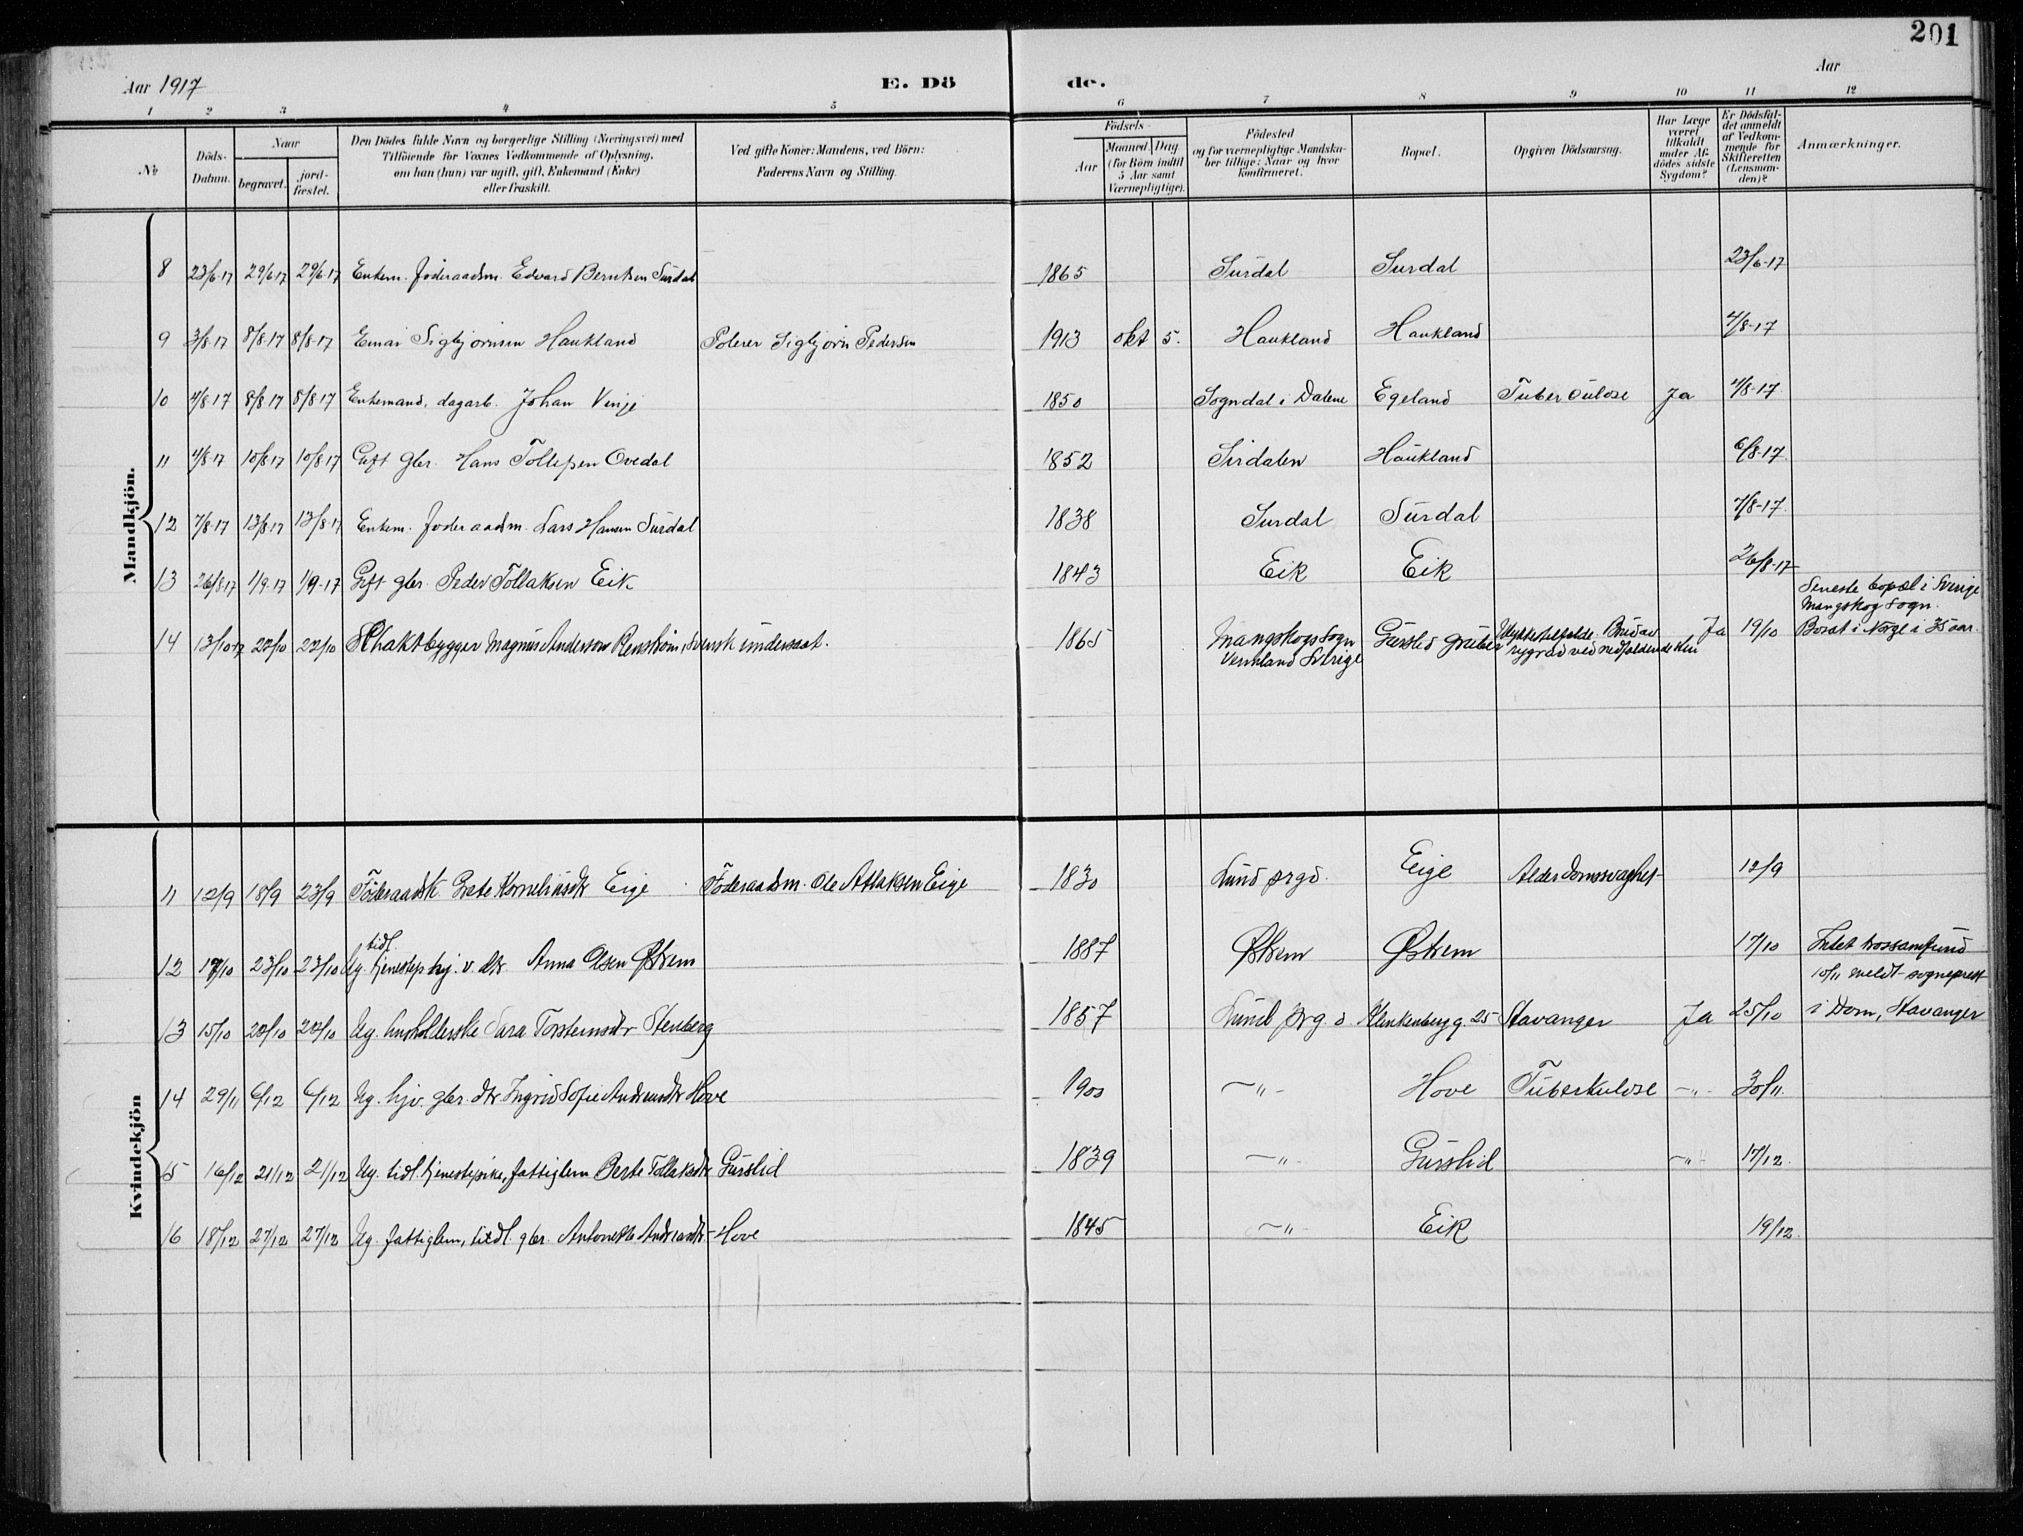 201
Aar 1917 E. Dö de. Aar
1 2 3 4 5 6 7 8 9 10 11 12
No
Döds-Datum.
Naar
begravet.
jord-fæstet.
Den Dödes fulde Navn og borgerlige Stilling (Næringsvei) med
Tilföiende for Voxnes Vedkommende af Oplysning,
om han (hun) var ugift, gift, Enkemand (Enke)
eller fraskilt.
Ved gifte Koner: Mandens, ved Börn:
Faderens Navn og Stilling.
Födsels-
Aar
Maaned. Dag
(for Börn indtil
5 Aar samt
Værnepligtige).
Födested
og for værnepligtige Mandska-
ber tillige: Naar og hvor
konfirmeret.
Bopæl.
Opgiven Dödsaarsag.
Har Læge
været
tilkaldt
under Af-
dödes sidste
Sygdom?
Er Dödsfal-
det anmeldt
af Vedkom-
mende for
Skifteretten
(Lensman-
den)?
Anmærkninger.
Mandkjön.
8 23/6-17 29/6 17 29/6-17 Enkem. foderaadsm. Edvard Berntsen Surdal 1865 Surdal Surdal 23/6-17
9 3/8-17 8/8-17 8/8-17 Einar Sigbjørnsen Haukland Polerer Sigbjørn Pedersen 1913 okt 5. Haukland Haukland 4/8-17
10 4/8-17 8/8 17 8/8 17 Enkemand, dagarb. Johan Vinje 1850 Sogndal i Dalene Egeland Tuberculose Ja 4/8-17
11 4/8 17 10/8-17 10/8-17 Gift gbr. Hans Tollefsen Ovedal 1852 Sirdalen Haukland 6/8-17
12 7/8-17 13/8-17 13/8-17 Enkem. foderaadm. Lars Hansen Surdal 1838 Surdal Surdal 7/8-17
13 26/8-17 1/9-17 1/9-17 Gift gbr. Peder Tollaksen Eik 1843 Eik Eik 26/8-17
Seneste bopæl i Sverige
Mangskog Sogn.
14 13/10-17 22/10 22/10 Skaktbygger Magnus Anderson Renstrøm, Svensk undersaat. 1865 Mangskogs Sogn Gurslid gruber Ulykkestilfælde. Brud av Ja 19/10 Bosat i Norge i 35 aar.
Vermland Sverige rygrad ved nedfaldende sten
Kvindekjön
11 12/9 18/9 23/9 Føderaadsk Grete Korneliusdtr Eige Føderaadsm. Ole Atlaksen Eige 1830 Lund prgd. Eige Alderdomssvaghet 12/9
tidl.
12 17/10 23/10 23/10 Ug. tjenestep hj. v. dtr Anna Olsen Østrem 1887 Østrem Østrem 17/10 Intet trossamfund
10/11 meldt sogneprest
13 15/10 20/10 20/10 Ug. husholderske Sara Torsteinsdtr Stenberg 1857 Lund prgd Blenkenberg g. 25 Stavanger Ja 25/10 i Dom, Stavanger
14 29/11 6/12 6/12 Ug. hjv. gbr. dtr Ingrid Sofie Andreasdtr Hove 1900 -"- Hove Tuberkulose -"- 30/11.
15 16/12 21/12 21/12 Ug. tidl. tjenestepike, fattiglem Berte Tollaksdtr Gurslid 1839 -"- Gurslid -"- 17/12.
16 18/12 27/12 27/12 Ug. fattiglem, tidl. gbr. Antonette Andreasdtr- Hove 1845 -"- Eik 19/12.